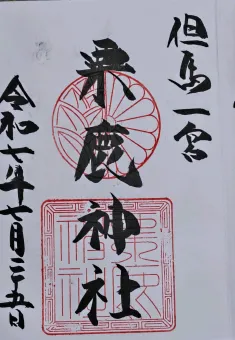 但馬一宮
粟鹿神社
令和七年七月二十五日
粟鹿神社